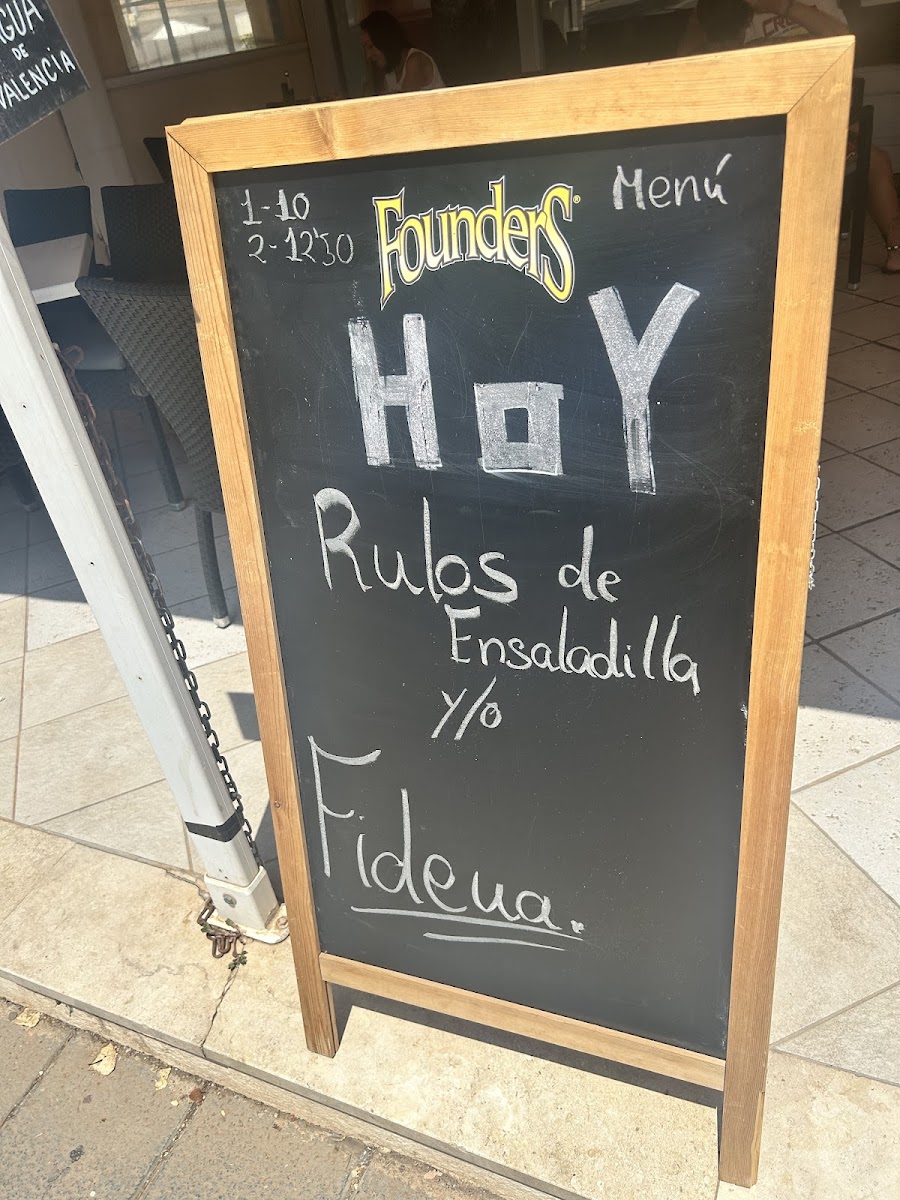 AGUA
DE
VALENCIA
1-10
2-12'50
Founders
Menú
HOY
Rulos de
Ensaladilla
y/o
Fideua.